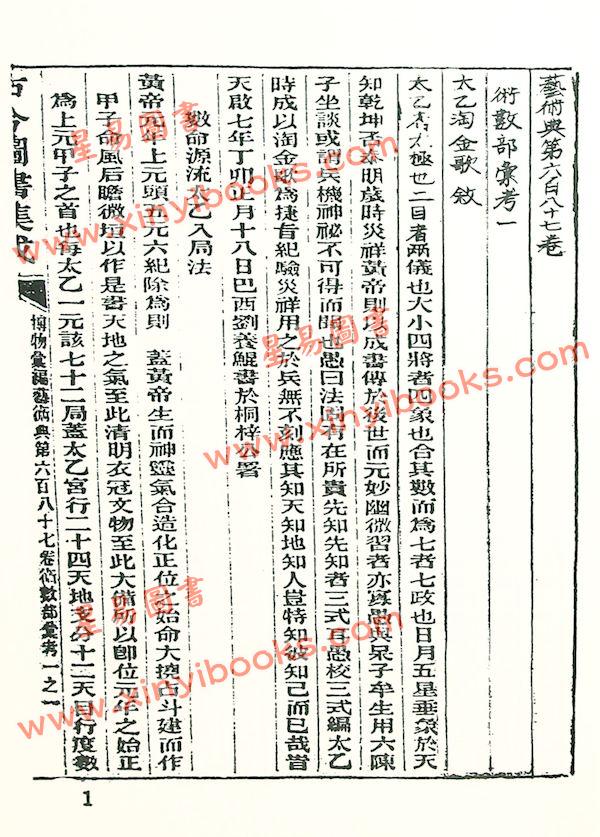 藝術典第六百八十七卷
術數部彙考一
太乙淘金歌敘
太乙者太極也二目者兩儀也大小四將者四象也合其數而爲七者七政也日月五星垂象於天
知乾坤否泰明歲時災祥黃帝則以成書傳於後世而元妙幽微習者亦寡愚與呆子牟生用六陳
子坐談或謂兵機神祕不可得而聞也愚曰法固有在所貴先知先知者三式耳愚校三式編太乙
時成以淘金歌爲捷旨紀驗災祥用之於兵無不刻應其知天知地知人豈特知彼知己而已哉旹
天啟七年丁卯正月十八日巴西劉養鯤書於桐梓公署
數命源流太乙入局法
黃帝元年上元頭五元六紀除爲則　蓋黃帝生而神靈氣合造化正位之始命大撓占斗建而作
甲子命風后瞻微垣以作是書天地之氣至此清明衣冠文物至此大備所以卽位元年之始正
爲上元甲子之首也每太乙一元該七十二局蓋太乙宮行二十四天地支分十二天目行度數
古今圖書集成
博物彙編藝術典第六百八十七卷術數部彙考一之一
1
星易圖書
www.xinyibooks.com
星易圖書
www.xinyibooks.com
星易圖書
www.xinyibooks.com